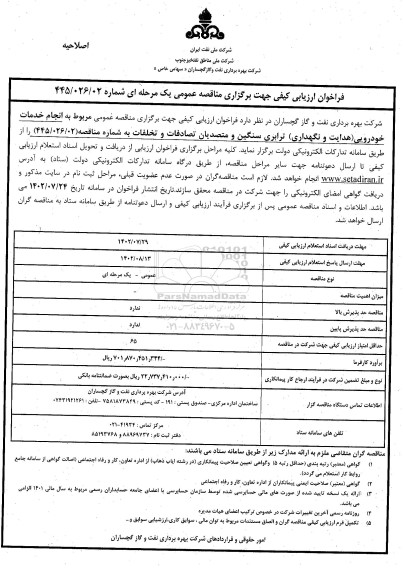 شرکت ملی نفت ایران
شرکت ملی مناطق نفتخیز جنوب
شرکت بهره برداری نفت و گاز گچساران « سهامی خاص »
اصلاحیه
فراخوان ارزیابی کیفی جهت برگزاری مناقصه عمومی یک مرحله ای شماره ۴۴۵/۰۲۶/۰۲
شرکت بهره برداری نفت و گاز گچساران در نظر دارد فراخوان ارزیابی کیفی جهت برگزاری مناقصه عمومی مربوط به انجام خدمات
خودرویی(هدایت و نگهداری) ترابری سنگین و متصدیان تصادفات و تخلفات به شماره مناقصه(۴۴۵/۰۲۶/۰۲) را از
طریق سامانه تدارکات الکترونیکی دولت برگزار نماید. کلیه مراحل برگزاری فراخوان ارزیابی از دریافت و تحویل اسناد استعلام ارزیابی
کیفی تا ارسال دعوتنامه جهت سایر مراحل مناقصه، از طریق درگاه سامانه تدارکات الکترونیکی دولت (ستاد) به آدرس
www.setadiran.ir انجام خواهد شد. لازم است مناقصه‌گران در صورت عدم عضویت قبلی، مراحل ثبت نام در سایت مذکور و
دریافت گواهی امضای الکترونیکی را جهت شرکت در مناقصه محقق سازند.تاریخ انتشار فراخوان در سامانه تاریخ ۱۴۰۲/۰۷/۲۴ می
باشد. اطلاعات و اسناد مناقصه عمومی پس از برگزاری فرآیند ارزیابی کیفی و ارسال دعوتنامه از طریق سامانه ستاد به مناقصه گران
ارسال خواهد شد.
مهلت دریافت اسناد استعلام ارزیابی کیفی ۱۴۰۲/۰۷/۲۹
مهلت ارسال پاسخ استعلام ارزیابی کیفی ۱۴۰۲/۰۸/۱۳
نوع مناقصه عمومی - یک مرحله ای
میزان اهمیت مناقصه -
مناقصه حد پذیرش بالا ندارد
مناقصه حد پذیرش پایین ندارد
حداقل امتیاز ارزیابی کیفی جهت شرکت در مناقصه ۶۵
برآورد کارفرما ۷۰۱,۸۷۰,۴۵۱,۳۴۴/- ریال
نوع و مبلغ تضمین شرکت در فرآیند ارجاع کار پیمانکاری ۲۲,۷۳۷,۴۱۰,۰۰۰/- ریال بصورت ضمانتنامه بانکی
اطلاعات تماس دستگاه مناقصه گزار آدرس شرکت بهره برداری نفت و گاز گچساران
ساختمان اداره مرکزی- صندوق پستی : ۱۹۱ - کد پستی : ۷۵۸۱۸۷۳۸۴۹ -تلفن : ۰۷۴۳۱۹۲۱۲۶۱
تلفن های سامانه ستاد مرکز تماس : ۴۱۹۳۴-۰۲۱
دفتر ثبت نام : ۸۸۹۶۹۷۳۷ و ۸۵۱۹۳۷۶۸
مناقصه گران متقاضی ملزم به ارائه مدارک زیر از طریق سامانه ستاد می باشند:
۱) گواهی (معتبر) رتبه بندی (حداقل رتبه ۵) وگواهی تعیین صلاحیت پیمانکاری (در رشته ایاب ذهاب) از اداره تعاون، کار و رفاه اجتماعی (اصالت گواهی از سامانه جامع
روابط کار استعلام می گردد).
۲) گواهی (معتبر) صلاحیت ایمنی پیمانکاران از اداره تعاون، کار و رفاه اجتماعی
۳) ارائه یک نسخه تایید شده از صورت های مالی حسابرسی شده توسط سازمان حسابرسی یا اعضای جامعه حسابداران رسمی مربوط به سال مالی ۱۴۰۱ الزامی
می باشد.
۴) روزنامه رسمی آخرین تغییرات شرکت در خصوص ترکیب اعضای هیات مدیره
۵) تکمیل فرم ارزیابی کیفی مناقصه گران و الصاق مستندات مربوط به توان مالی ، سوابق کاری،ارزشیابی سوابق و...
امور حقوقی و قراردادهای شرکت بهره برداری نفت و گاز گچساران
ParsNamadData
۰۲۱-۸۸۳۴۹۶۷۰-۵